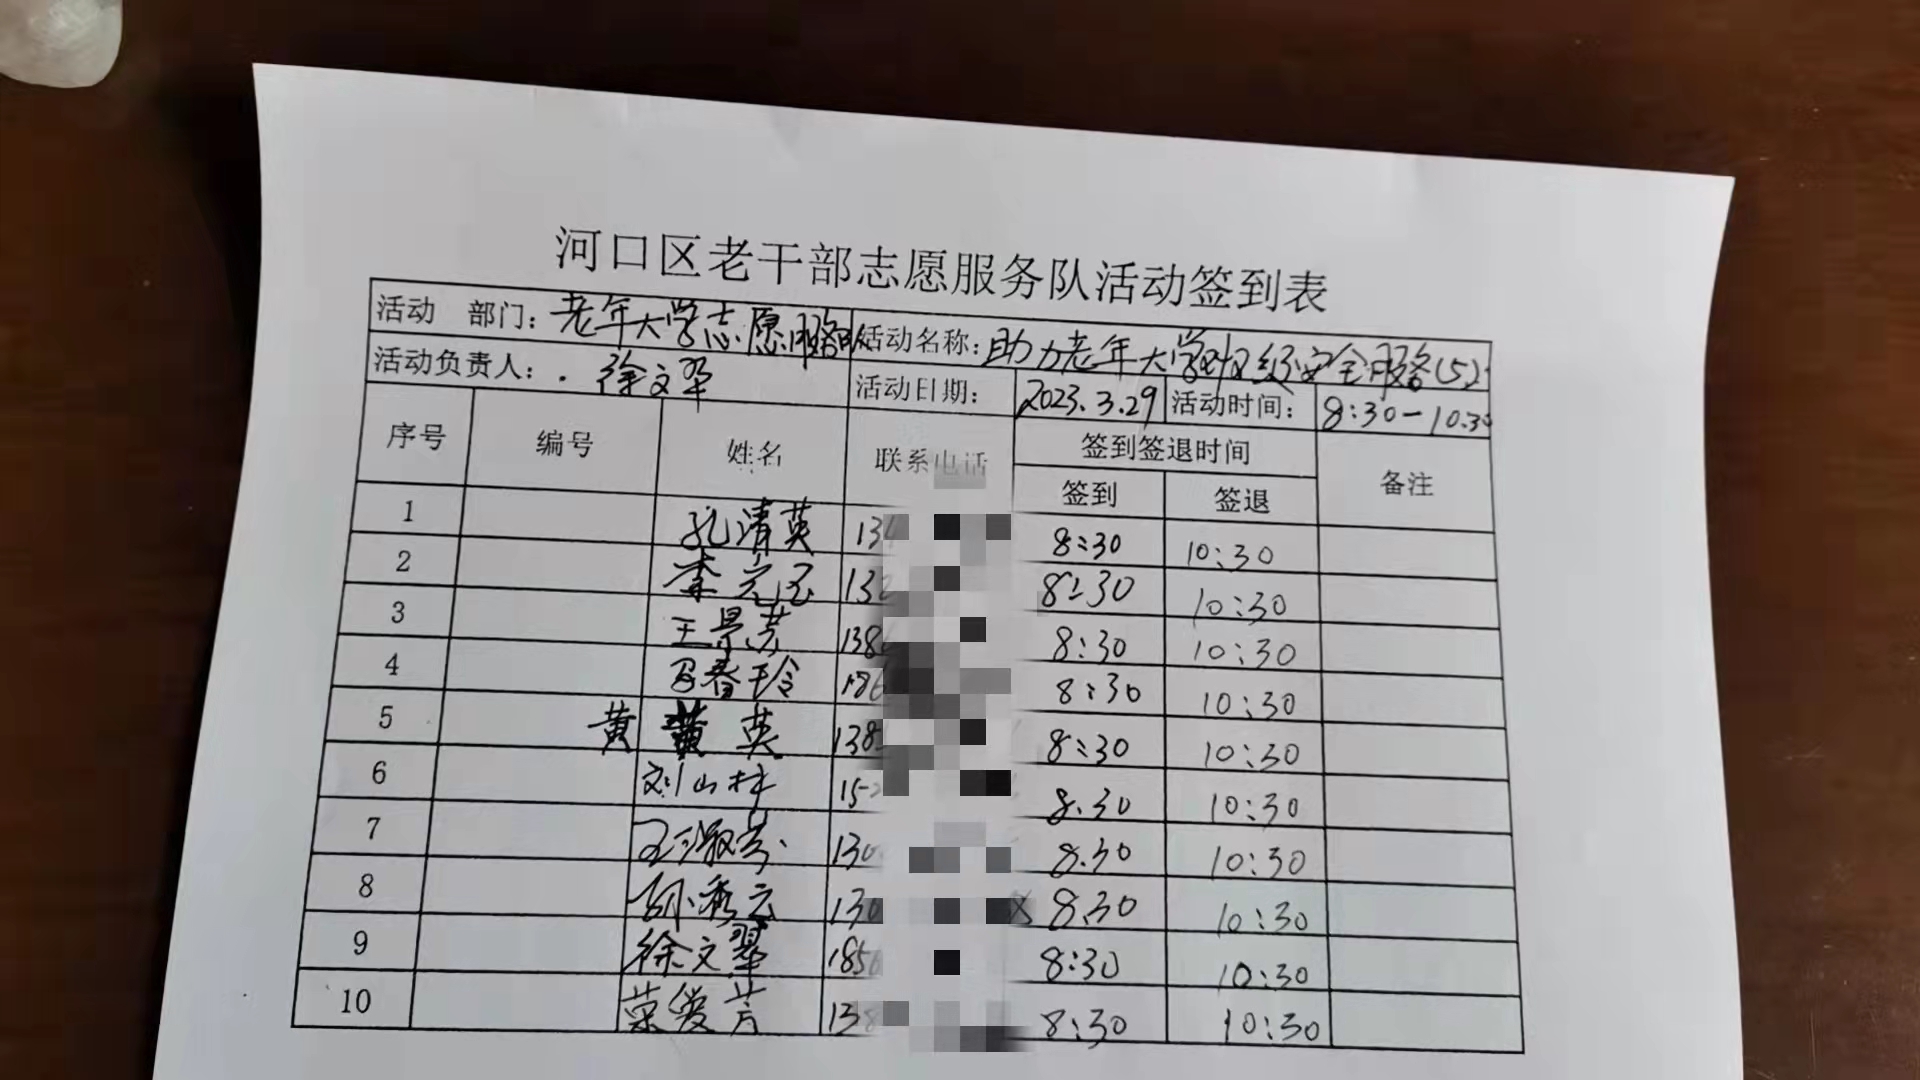 河口区老干部志愿服务队活动签到表
活动 部门：老年大学志愿服务队 活动名称：助力老年大学班级安全服务(52
活动负责人：. 徐文翠 活动日期： 2023.3.29 活动时间： 8:30-10.30
序号 编号 姓名 联系电话 签到签退时间 备注
签到 签退
1 孔清英 134 8:30 10:30
2 李 132 8:30 10:30
3 王景芳 138 8:30 10:30
4 春玲 186 8:30 10:30
5 黄 黄 英 138 8:30 10:30
6 刘山林 152 8.30 10:30
7 130 8.30 10:30
8 孙秀云 130 8.30 10:30
9 徐文翠 185 8:30 10:30
10 荣爱芳 138 8:30 10:30